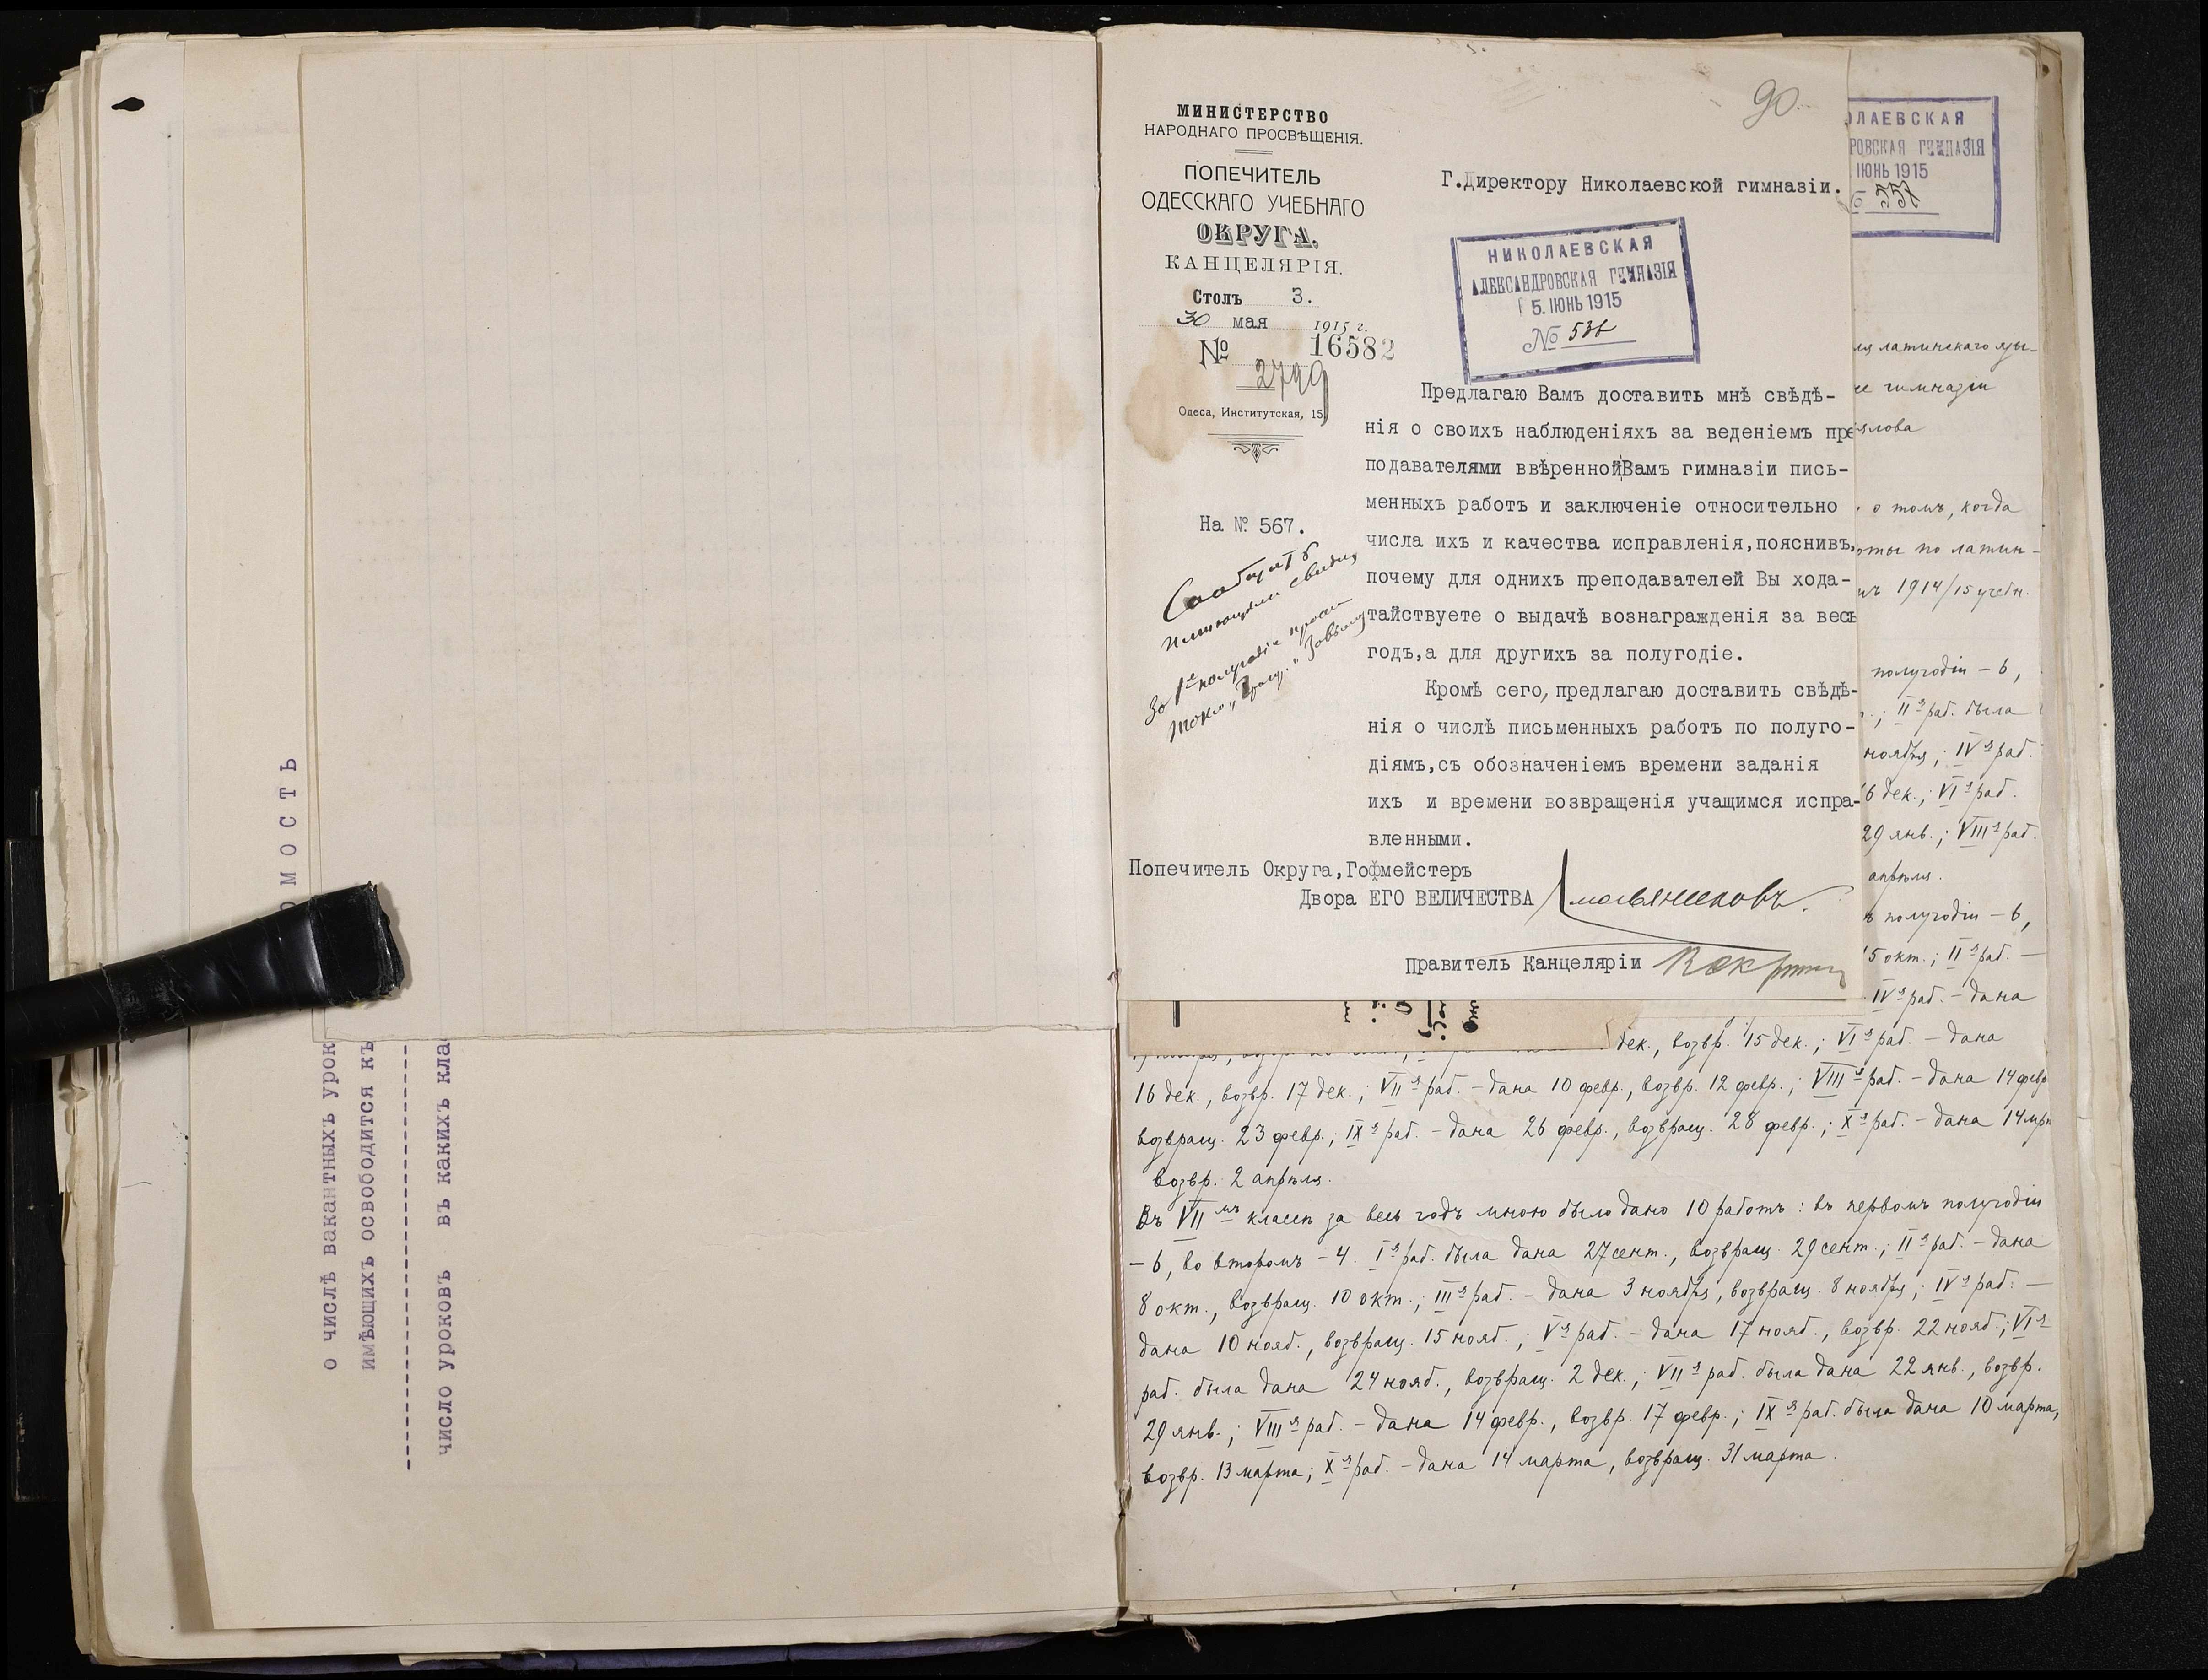 о числѣ вакантныхъ урок
имѣющихъ освободится къ
число уроковъ въ какихъ клас
мость
90.
МИНИСТЕРСТВО
НАРОДНАГО ПРОСВѢЩЕНІЯ.
ПОПЕЧИТЕЛЬ
ОДЕССКАГО УЧЕБНАГО
ОКРУГА.
КАНЦЕЛЯРІЯ.
Столъ 3.
30 мая 1915 г.
№ 16582
2729
Одеса, Институтская, 15
На № 567.
Г.Директору Николаевской гимназіи.
НИКОЛАЕВСКАЯ
АЛЕКСАНДРОВСКАЯ ГИМНАЗІЯ
5. ІЮНЬ 1915
№
Предлагаю Вамъ доставить мнѣ свѣдѣ-
нія о своихъ наблюденіяхъ за веденіемъ пре
подавателями ввѣренной Вамъ гимназіи пись-
менныхъ работъ и заключеніе относительно
числа ихъ и качества исправленія,пояснивъ,
почему для однихъ преподавателей Вы хода-
тайствуете о выдачѣ вознагражденія за весь
годъ,а для другихъ за полугодіе.
Кромѣ сего,предлагаю доставить свѣдѣ-
нія о числѣ письменныхъ работъ по полуго-
діямъ,съ обозначеніемъ времени заданія
ихъ и времени возвращенія учащимся испра-
вленными.
Попечитель Округа,Гофмейстеръ
Двора ЕГО ВЕЛИЧЕСТВА Смольяниновъ.
Правитель Канцеляріи
Сообщить
За 1е полугодіе
ОЛАЕВСКАЯ
РОВСКАЯ ГИМНАЗІЯ
ІЮНЬ 1915
ля латинскаго язы-
ее гимназіи
о томъ, когда
оты по латин-
1914/15 учебн.
полугодіи – 6,
; IIя раб. была
ноября; IVя раб.
16 дек.; VIя раб.
29 янв.; VIIIя раб.
апрѣля.
полугодіи – 6,
15 окт.; IIя раб. –
IVя раб. – дана
дек., возвр. 15 дек.; VIя раб. – дана
16 дек., возвр. 17 дек.; VIIя раб. – дана 10 февр., возвр. 12 февр.; VIIIя раб. – дана 14 февр
возвращ. 23 февр.; IXя раб. – дана 26 февр., возвращ. 28 февр.; Xя раб. – дана 14 мрт
возвр. 2 апрѣля.
Въ VIIмъ классѣ за весь годъ мною было дано 10 работъ: въ первомъ полугодіи
– 6, во второмъ – 4. Iя раб. была дана 27 сент., возвращ. 29 сент.; IIя раб. – дана
8 окт., возвращ. 10 окт.; IIIя раб. – дана 3 ноября, возвращ. 8 ноября; IVя раб. –
дана 10 нояб., возвращ. 15 нояб.; Vя раб. – дана 17 нояб., возвр. 22 нояб.; VIя
раб. была дана 24 нояб., возвращ. 2 дек.; VIIя раб. была дана 22 янв., возвр.
29 янв.; VIIIя раб. – дана 14 февр., возвр. 17 февр.; IXя раб. была дана 10 марта,
возвр. 13 марта; Xя раб. – дана 14 марта, возвращ. 31 марта.